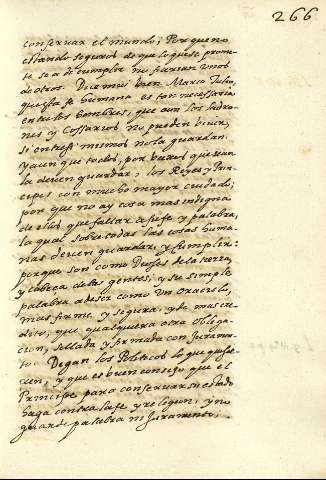 266
conseruar el mundo; Porque no
estando seguros de que lo que se prome
te se à de cumplir no fiarian unos
de otros. Dice mui bien Marco Tulio,
que esta fe humana es tan necessaria
entre los hombres, que aun los ladro
nes y Cossarios no pueden viuir,
si entre si mismos no la guardan.
Y aun que todos, por buenos que sean
la deuen guardar, los Reyes y Prin
cipes con mucho mayor cuidado;
por que no ay cosa mas indigna
de ellos que faltar à su fe y palabra,
la qual sobre todas las cosas huma
nas deuen guardar, y cumplir:
porque son como Dioses de la tierra,
y cabeça de las gentes; y su simple
palabra à de ser como un Oraculo,
mas firme, y segura, y de mas cre
dito, que qualquiera otra Obliga
cion, sellada y firmada con Juramen
to. Digan los Politicos lo que quisie
ren, y que es buen consejo que el
Principe para conseruar su estado
haga contra la fe y religion, y no
guarde palabra ni Juramento;